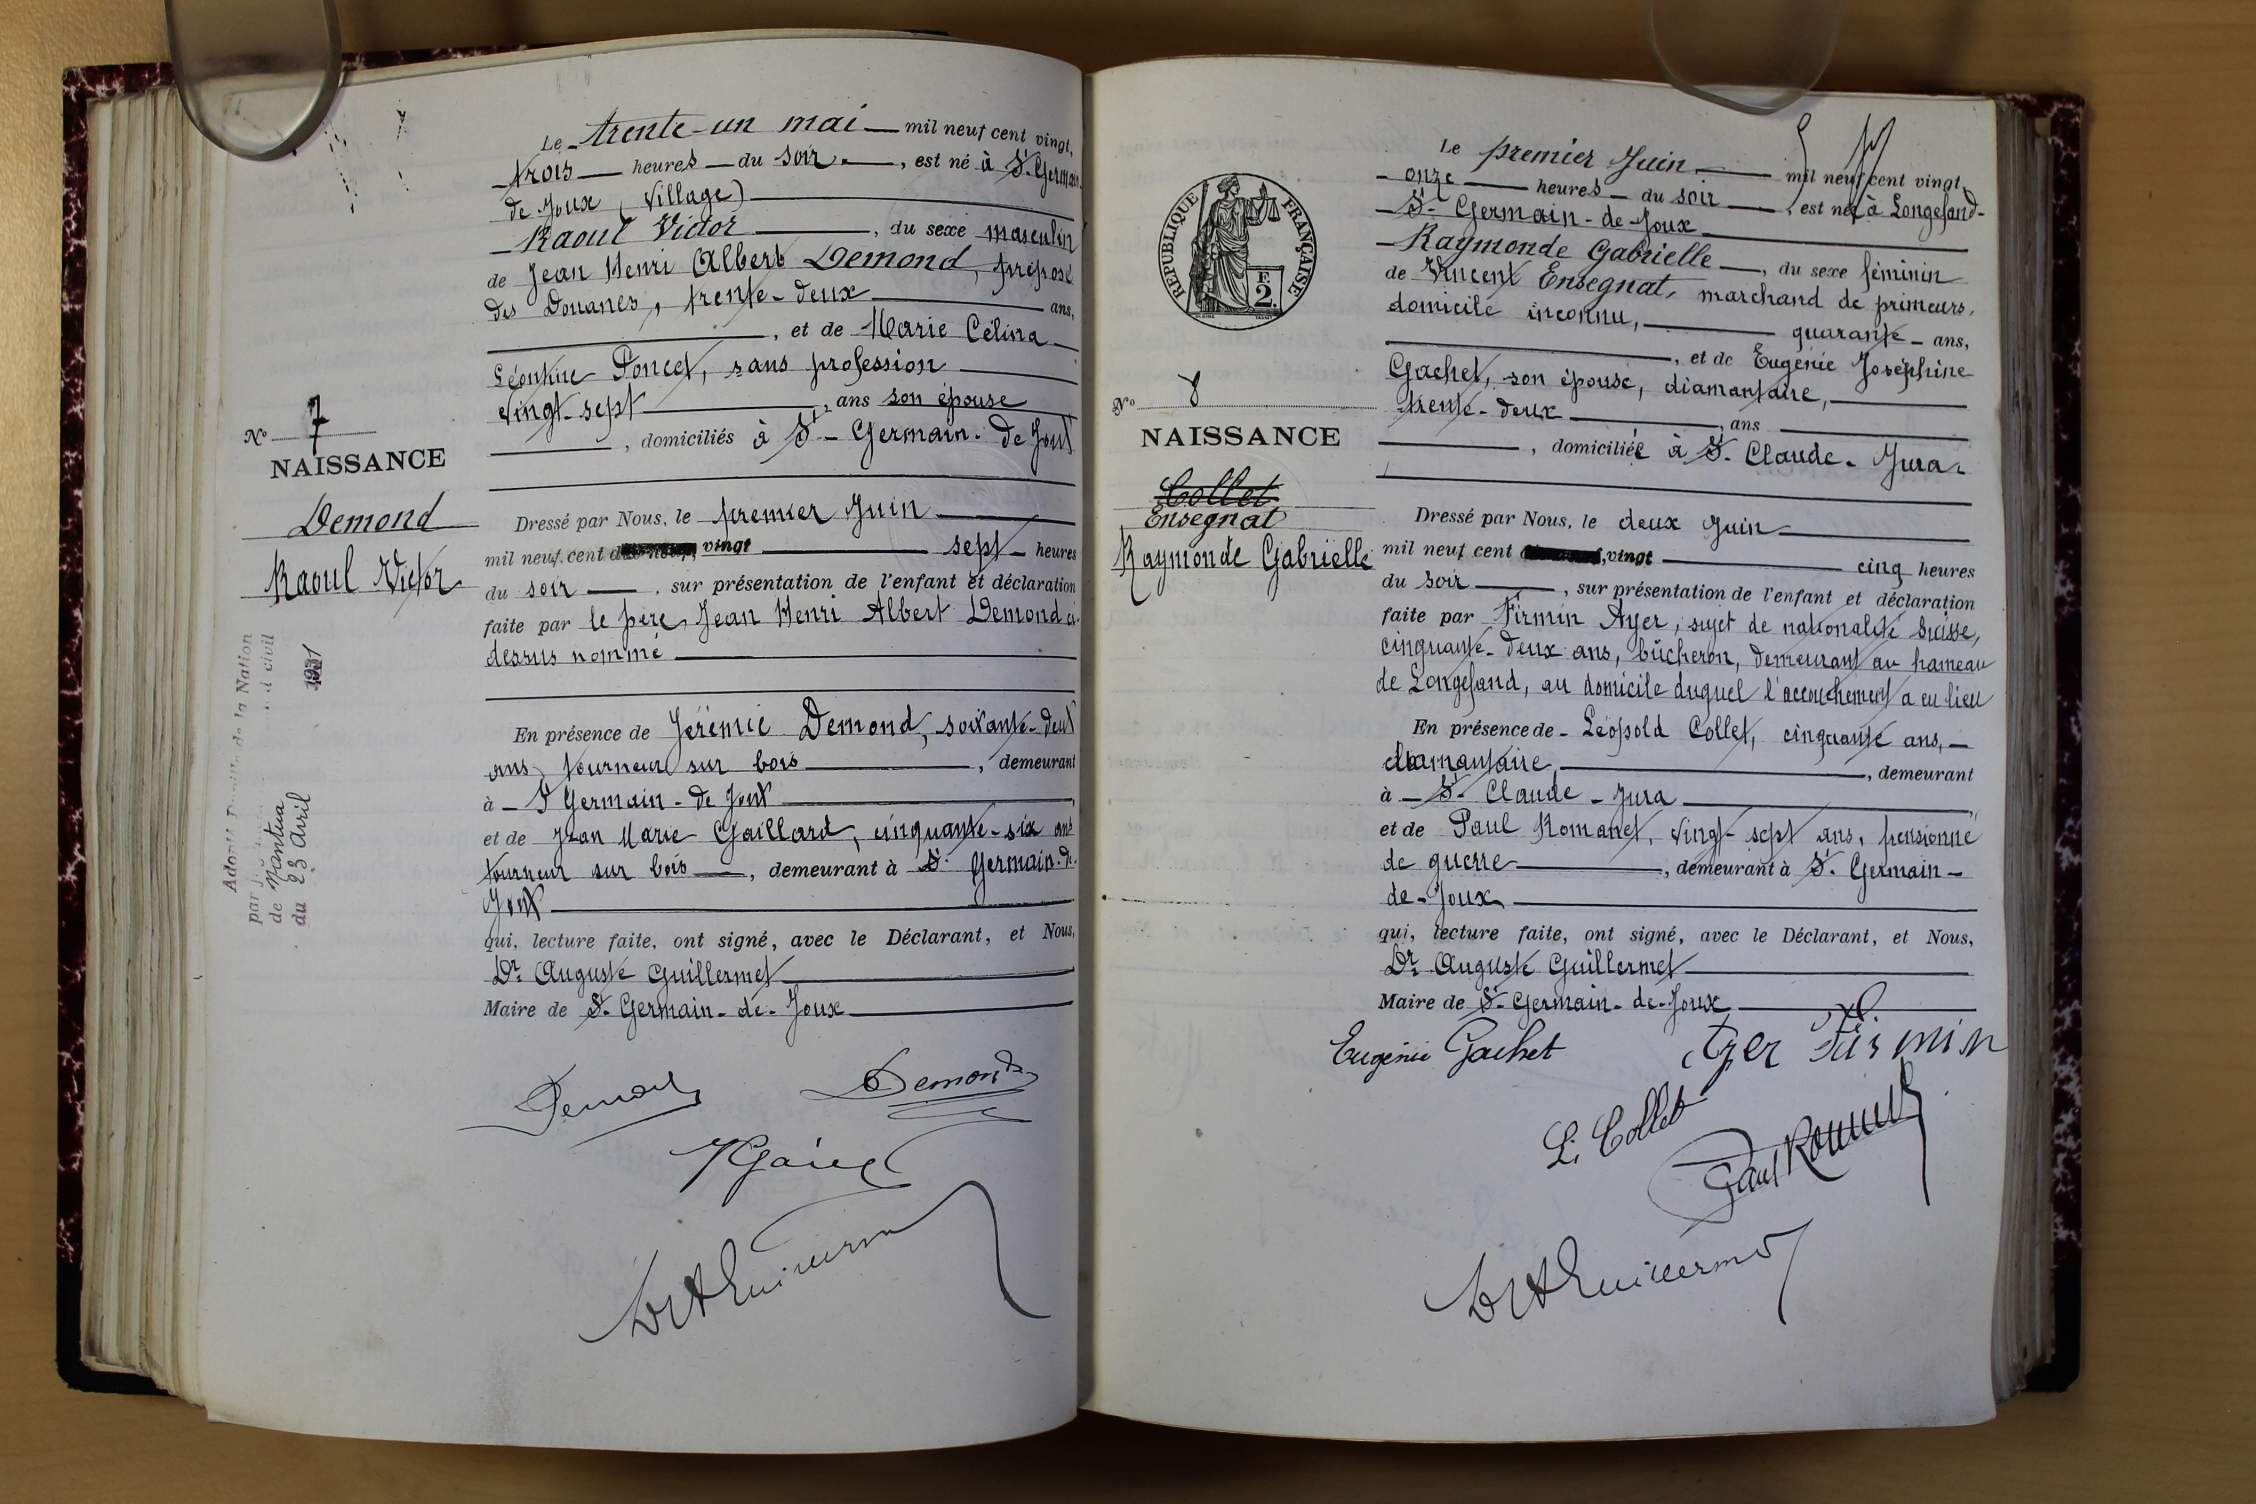 Le trente-un mai mil neuf cent vingt,
trois heures du soir, est né à St. Germain
de Joux (Village)
Raoul Victor, du sexe masculin
de Jean Henri Albert Demond, préposé
des Douanes, trente-deux ans,
, et de Marie Célina
Léontine Poncet, sans profession
vingt-sept, ans son épouse
, domiciliés à St- Germain-de Joux
No 7
NAISSANCE
Demond
Raoul Victor
Dressé par Nous, le premier Juin
mil neuf cent vingt sept heures
du soir, sur présentation de l'enfant et déclaration
faite par le père, Jean Henri Albert Demond ci-
dessus nommé
En présence de Jérémie Demond, soixante-deux
ans, tourneur sur bois, demeurant
à St Germain-de Joux
et de Jean Marie Gaillard, cinquante-six ans
tourneur sur bois, demeurant à St. Germain-de-
Joux
qui, lecture faite, ont signé, avec le Déclarant, et Nous,
Dr. Auguste Guillermet
Maire de St- Germain-de-Joux
de la Nation
civil
de Nantua
du 23 Avril 1931
Demond
Demond
Le premier Juin mil neuf cent vingt,
onze heures du soir, est née à Longefand-
St- Germain-de-Joux
Raymonde Gabrielle, du sexe féminin
de Vincent Ensegnat, marchand de primeurs,
domicile inconnu, quarante ans,
, et de Eugénie Joséphine
Gachet, son épouse, diamantaire,
trente-deux, ans
, domiciliée à St- Claude- Jura.
RÉPUBLIQUE FRANÇAISE
F.
2.
No 8
NAISSANCE
Collet
Ensegnat
Raymonde Gabrielle
Dressé par Nous, le deux Juin
mil neuf cent , vingt cinq heures
du soir, sur présentation de l'enfant et déclaration
faite par Firmin Ayer, sujet de nationalité Suisse,
cinquante-deux ans, bûcheron, demeurant au hameau
de Longefand, au domicile duquel l'accouchement a eu lieu
En présence de Léopold Collet, cinquante ans,
diamantaire, demeurant
à St- Claude - Jura
et de Paul Romanet, vingt-sept ans, pensionné
de guerre, demeurant à St. Germain-
de-Joux
qui, lecture faite, ont signé, avec le Déclarant, et Nous,
Dr. Auguste Guillermet
Maire de St- Germain-de-Joux
Eugénie Gachet
Ayer Firmin
L. Collet
Paul Romanet
Dr A Guillermet